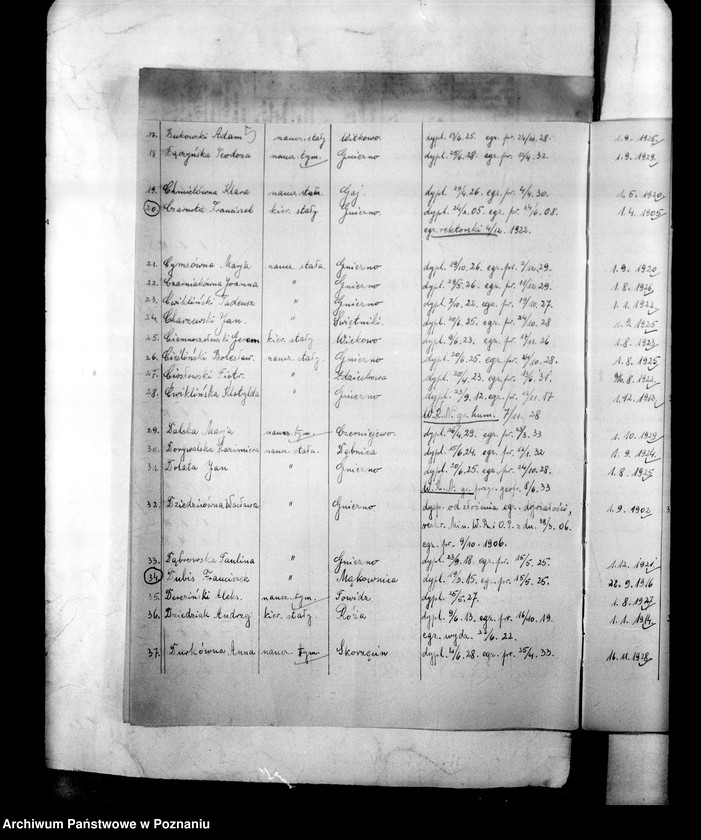 17. Bukowski Adam naucz. stały Witkowo. dypl. 17/6.25. egz. pr. 24/10.28. 1.9.1925
18. Bączyńska Teodora naucz. tym. Gniezno dypl. 6.28. egz. pr. 4.32. 1.9.1929
19. Chmielówna Klara naucz. stała Gaj. dypl. 29/4.26. egz. pr. 4/4.30. 1.5.1920
20. Czarnota Franciszek kier. stały Gniezno. dypl. 24/2.05. egz. pr. 24/6.08. 1.4.1905
egz. rektorski 4/12. 1922.
21. Cymsówna Maria naucz. stała. Gniezno dypl. 19/10.26. egz. pr. 3/12.29. 1.9.1920
22. Czarniakówna Joanna " Gniezno dypl. 29/5.26. egz. pr. 12.29. 1.8.1926
23. Ćwikliński Tadeusz " Gniezno dypl. 7/10.22. egz. pr. 19/10.27. 1.1.1922
24. Charzewski Jan. " Świętniki. dypl. 20/6.25. egz. pr. 24/10.28 1.9.1925
25. kier. stały Witkowo dypl. 9/6.23. egz. pr. 17/11.26 1.8.1923
26. Cieśliński Bolesław. naucz. stały. Gniezno dypl. 20/6.25. egz. pr. 24/10.28. 1.8.1925
27. Ciosłowski Piotr. " Zdziechowa dypl. 25/4.23. egz. pr. 6.31. 8.1922
28. Ćwiklińska Klotylda " Gniezno dypl. 23/9.12. egz. pr. 11.17 1.12.1912
W.K.N. gr. hum. 7/11.28
29. Dalska Maria naucz. tym. Czerniejewo. dypl. 26/4.29. egz. pr. 3.33 1.10.1929
30. Kazimiera naucz. stała. Dębnica dypl. 15/6.24. egz. pr. 1.32 1.9.1924
31. Dolata Jan " Gniezno dypl. 20/6.25. egz. pr. 24/10.28. 1.8.1925
W.K.N. gr. przyr. geogr. 8/6.33
32. Dziedziówna Wacława " Gniezno dysp. od złożenia egz. dojrzałości, 1.9.1902
reskr. Min. W.R. i O.P. z dn. 28/3.06.
egz. pr. 9/10.1906.
33. Dąbrowska Paulina " Gniezno dypl. 23/9.18. egz. pr. 15/5.25. 1.12.1921
34. Dubis Franciszek " Mąkownica dypl. 19/2.15. egz. pr. 15/5.25. 22.9.1916
35. Dereziński Aleks. naucz. tym. Powidz dypl. 25/5.27. 1.8.1927
36. Dziedziak Andrzej kier. stały Róża dypl. 9/6.13. egz. pr. 16/10.19. 1.1.1914
egz. wydz. 6.22.
37. Durkówna Anna naucz. tym Skorzęcin dypl. 4/6.28. egz. pr. 25/4.33. 16.11.1928
Archiwum Państwowe w Poznaniu